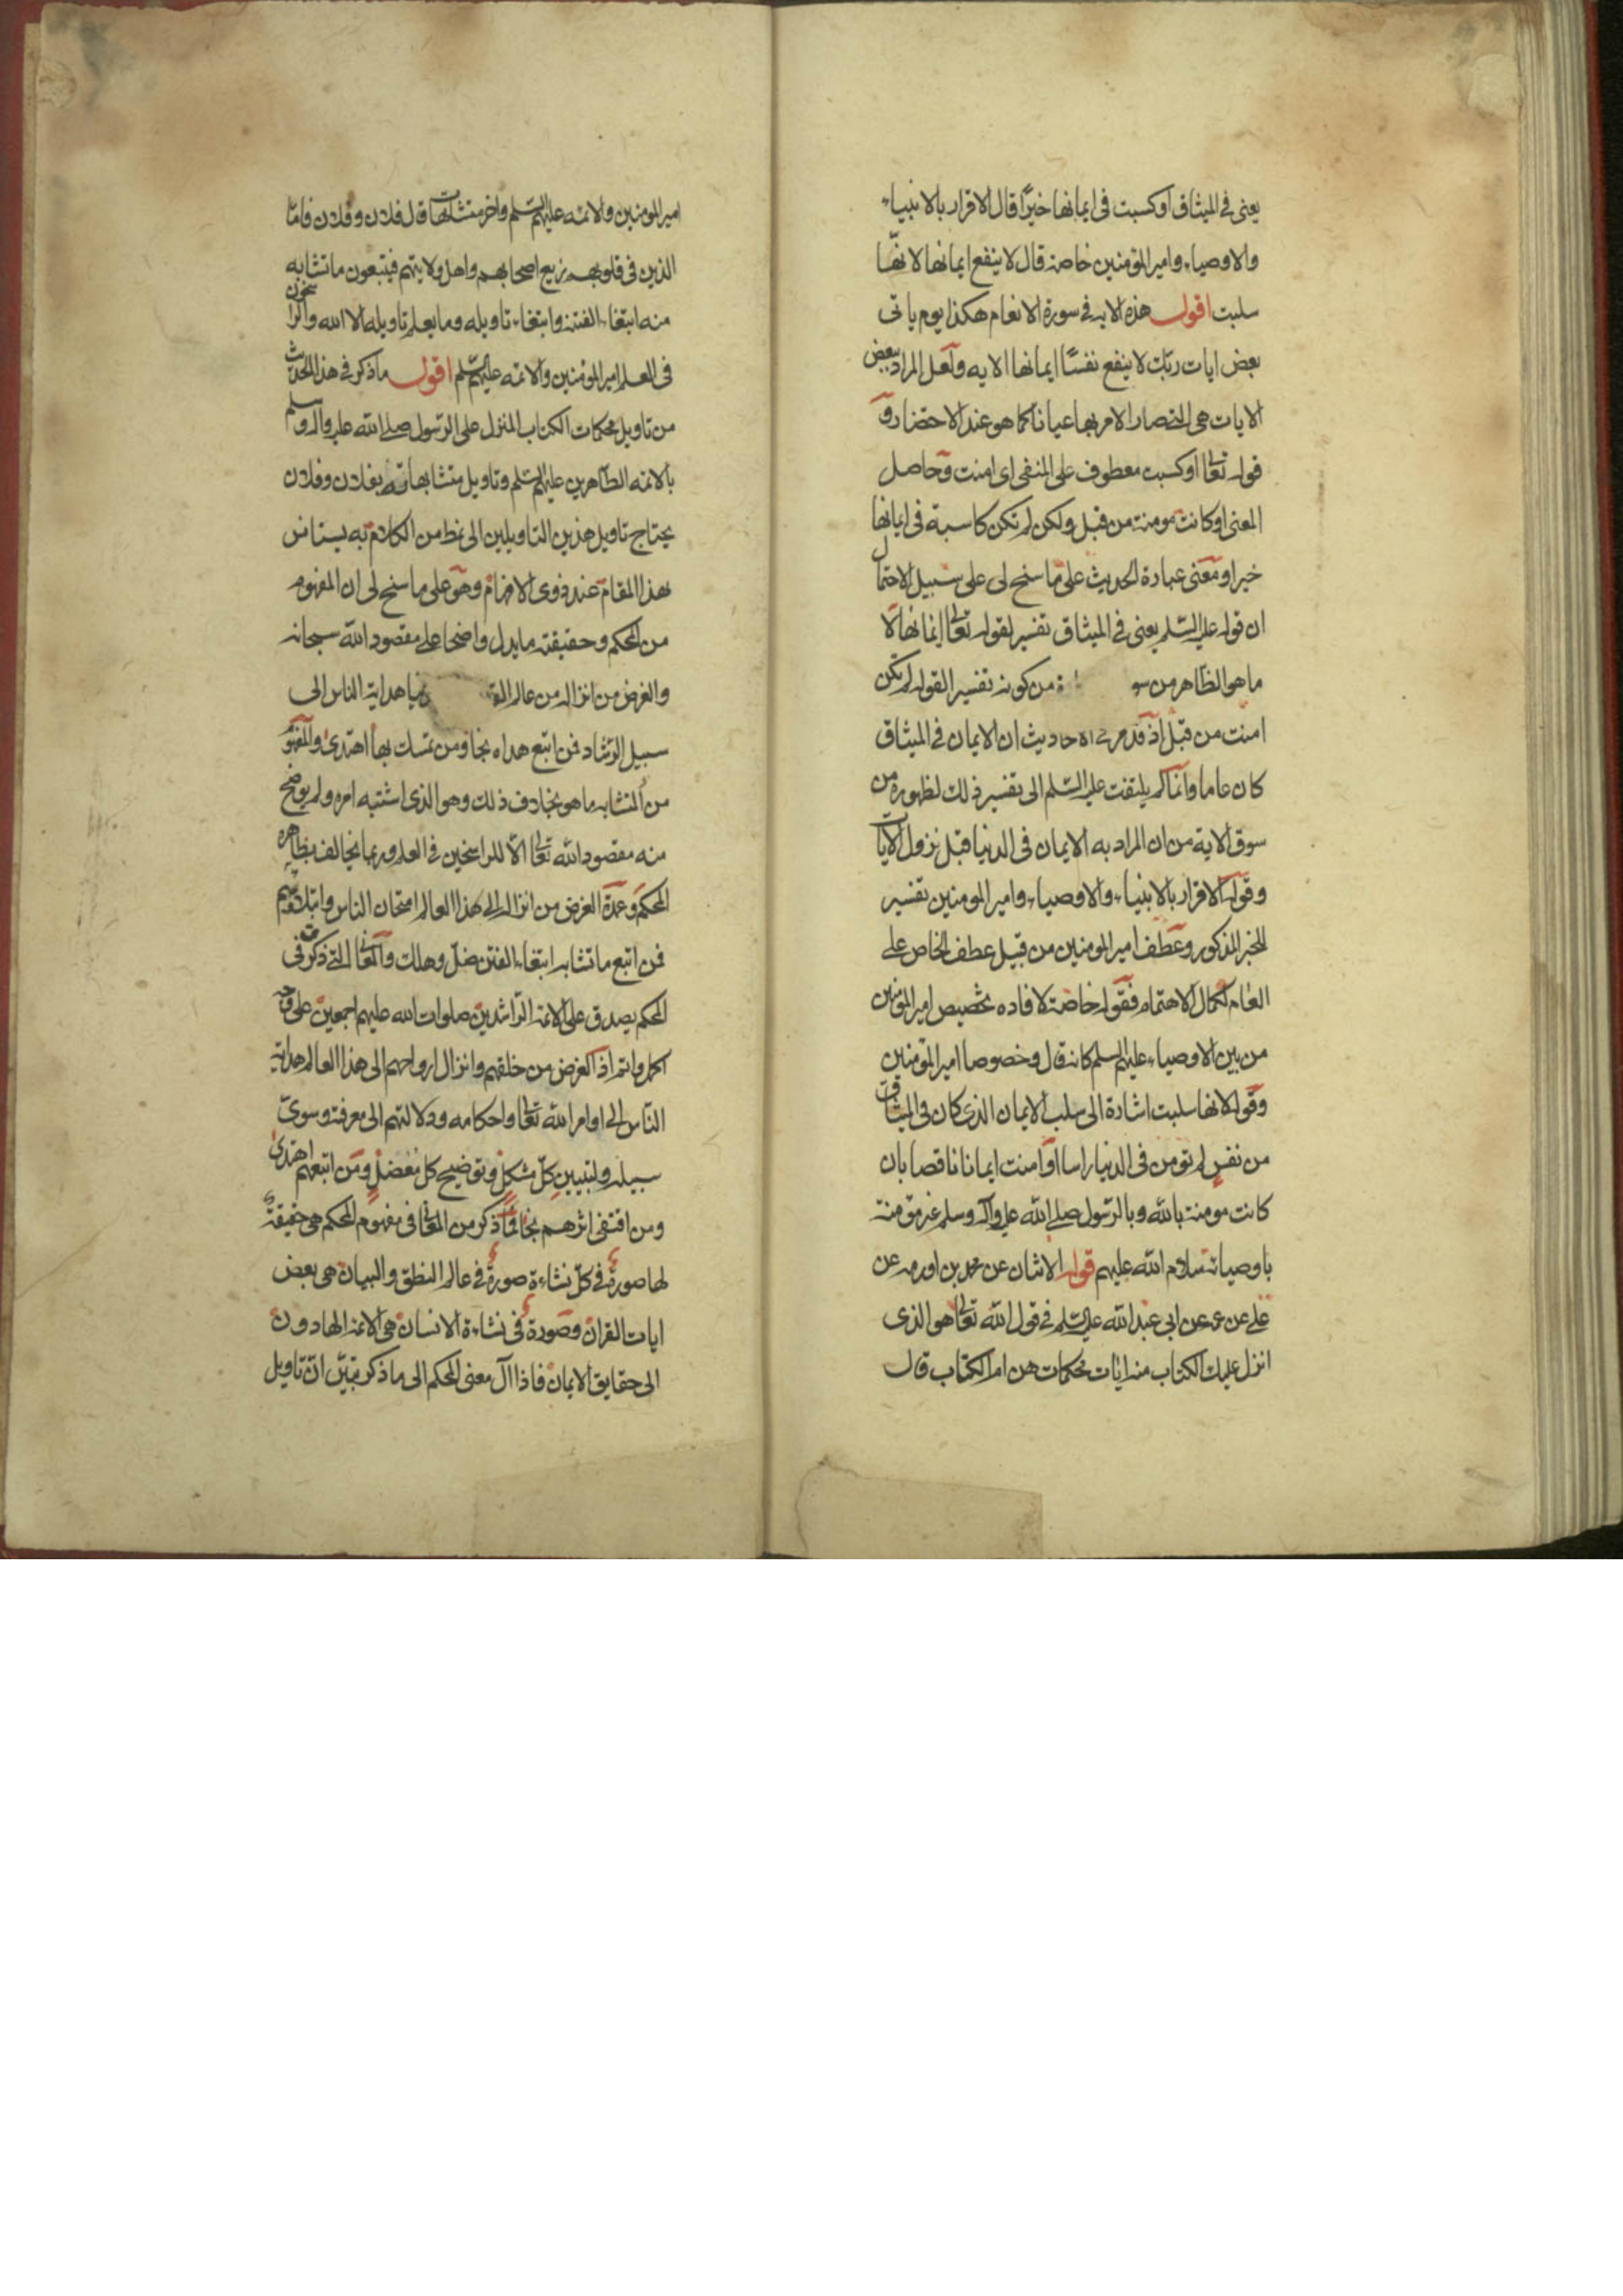 يعنى فى الميثاق اوكسبت فى ايمانها خيرًا قال الاقرار بالانبياء
والاوصياء وامير المؤمنين خاصة قال لا ينفع ايمانها لانّها
سلبت اقول هذه الايه فى سورة الانعام هكذا يوم ياتى
بعض ايات ربّك لا ينفع نفسًا ايمانها الايه ولعل المراد ببعض
الايات هى التى صار الامر بها عيانا كما هو عند الاحتضار و
قوله تعالى اوكسبت معطوف على المنفى اى امنت وحاصل
المعنى اوكانت مومنة من قبل ولكن لم تكن كاسبة فى ايمانها
خيرا ومعنى عبارة الحديث على ما سنح لى على سبيل الاحتمال
ان قوله عليه السّلم يعنى فى الميثاق تفسير لقوله تعالى ايمانها لا
ما هو الظاهر من سو من كونه تفسير القوله لم تكن
امنت من قبل اذ قد مر فى الاحاديث ان الايمان فى الميثاق
كان عاما وانما لم يلتفت عليه السّلم الى تفسير ذلك لظهوره من
سوق الاية من ان المراد به الايمان فى الدنيا قبل نزول الايات
وقوله الاقرار بالانبياء والاوصياء وامير المومنين تفسير
للخير المذكور وعطف امير المومنين من قبيل عطف الخاص على
العام لكمال الاهتمام فقوله خاصة لافاده تخصيص امير المؤمنين
من بين الاوصياء عليهم السلم كانه قال وخصوصا امير المؤمنين
وقوله لانها سلبت اشارة الى سلب الايمان الذى كان فى الميثاق
من نفس لم تؤمن فى الدنيا راسا او امنت ايمانا ناقصا بان
كانت مومنة بالله وبالرّسول صلى الله عليه وآله وسلم غير مؤمنة
باوصيائه سلام الله عليهم قوله الاثنان عن محمد بن اورمه عن
على عن عمه عن ابى عبد الله عليه السّلم فى قول الله تعالى هو الذى
انزل عليك الكتاب منه ايات محكمات هن ام الكتاب قال
امير المومنين والائمه عليهم السّلم واخر متشابهات قال فلان وفلان فامّا
الذين فى قلوبهم زيع اصحابهم واهل ولايتهم فيتبعون ما تشابه
منه ابتغاء الفتنة وابتغاء تاويله وما يعلم تاويله الا الله والراسخون
فى العلم امير المؤمنين والائمه عليهم السّلم اقول ما ذكر فى هذا الحديث
من تاويل محكمات الكتاب المنزل على الرّسول صلى الله عليه وآله وسلم
بالائمه الطّاهرين عليهم السّلم وتاويل متشابهاته بفلان وفلان
يحتاج تاويل هذين التاويلين الى نمط من الكلام به يستانس
بهذا المقام عند ذوى الافهام وهو على ما سنح لى ان المفهوم
من المحكم وحقيقته ما يدل واضحا على مقصود الله سبحانه
والغرض من انزاله من عالم هداية الناس الى
سبيل الرّشاد فمن اتبع هداه نجا ومن تمسك بها اهتدى والمفهوم
من المتشابه ما هو بخلاف ذلك وهو الذى اشتبه امره ولم يوضح
منه مقصود الله تعالى الّا للراسخين فى العلم وربما يخالف بظاهره
المحكم وعمدة الغرض من انزاله الى هذا العالم امتحان الناس وابتلاؤهم
فمن اتبع ما تشابه ابتغاء الفتن ضلّ وهلك والمعانى التى ذكرت فى
المحكم يصدق على الائمة الرّاشدين صلوات الله عليهم اجمعين على وجه
اكمل واتم اذ الغرض من خلقهم وانزال ارواحهم الى هذا العالم هداية
النّاس الى اوامر الله تعالى واحكامه ودلالتهم الى معرفته وسوى
سبيله ولتبيين كلّ مشكل وتوضيح كل معضل ومن اتبعهم اهتدى
ومن اقتفى اثرهم نجا لمّا ذكر من المعانى فى مفهوم المحكم هى حقيقة
لها صورة فى كل نشاءة صورة فى عالم النطق والبيان هى بعض
ايات القران وصورة فى نشاءة الانسان هى الائمة الهادون
الى حقايق الايمان فاذا آل معنى المحكم الى ما ذكر تبيّن انّ تاويل